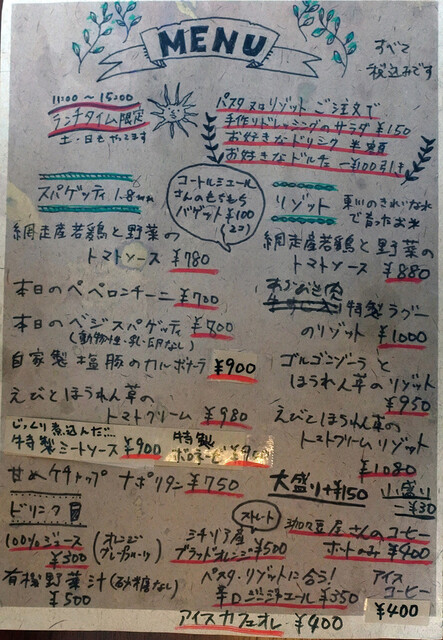 MENU
すべて
税込みです
11:00 〜 15:00
ランチタイム限定
土・日もやってます
パスタ又はリゾット ご注文で
手作りドレッシングのサラダ ¥150
お好きなドリンク 半額
お好きなドルチェ ¥100引き
スパゲッティ 1.8mm
コートルミエール
さんのもちもち
バゲット ¥100
(2コ)
網走産若鶏と野菜の
トマトソース ¥780
本日のペペロンチーニ ¥700
本日のベジスパゲッティ ¥800
(動物性・乳・卵なし)
自家製塩豚のカルボナーラ ¥900
えびとほうれん草の
トマトクリーム ¥980
じっくり煮込んだ…
特製ミートソース ¥900
特製
ボロネーゼ
甘めケチャップ ナポリタン ¥750
リゾット
東川のきれいな水
で育ったお米
網走産若鶏と野菜の
トマトソース ¥880
特製ラグー
のリゾット ¥1000
ゴルゴンゾーラと
ほうれん草のリゾット
¥950
えびとほうれん草の
トマトクリームリゾット
¥1080
大盛り+¥150
小盛り
-¥30
ドリンク
100%ジュース
¥300
(オレンジ
グレープフルーツ)
有機野菜汁(砂糖なし)
¥500
ストレート
シチリア産
ブラッドオレンジ ¥500
パスタ・リゾットに合う!
辛口ジンジャエール ¥350
アイスカフェオレ ¥400
珈豆屋さんのコーヒー
ホットのみ ¥400
アイス
コーヒー
¥400